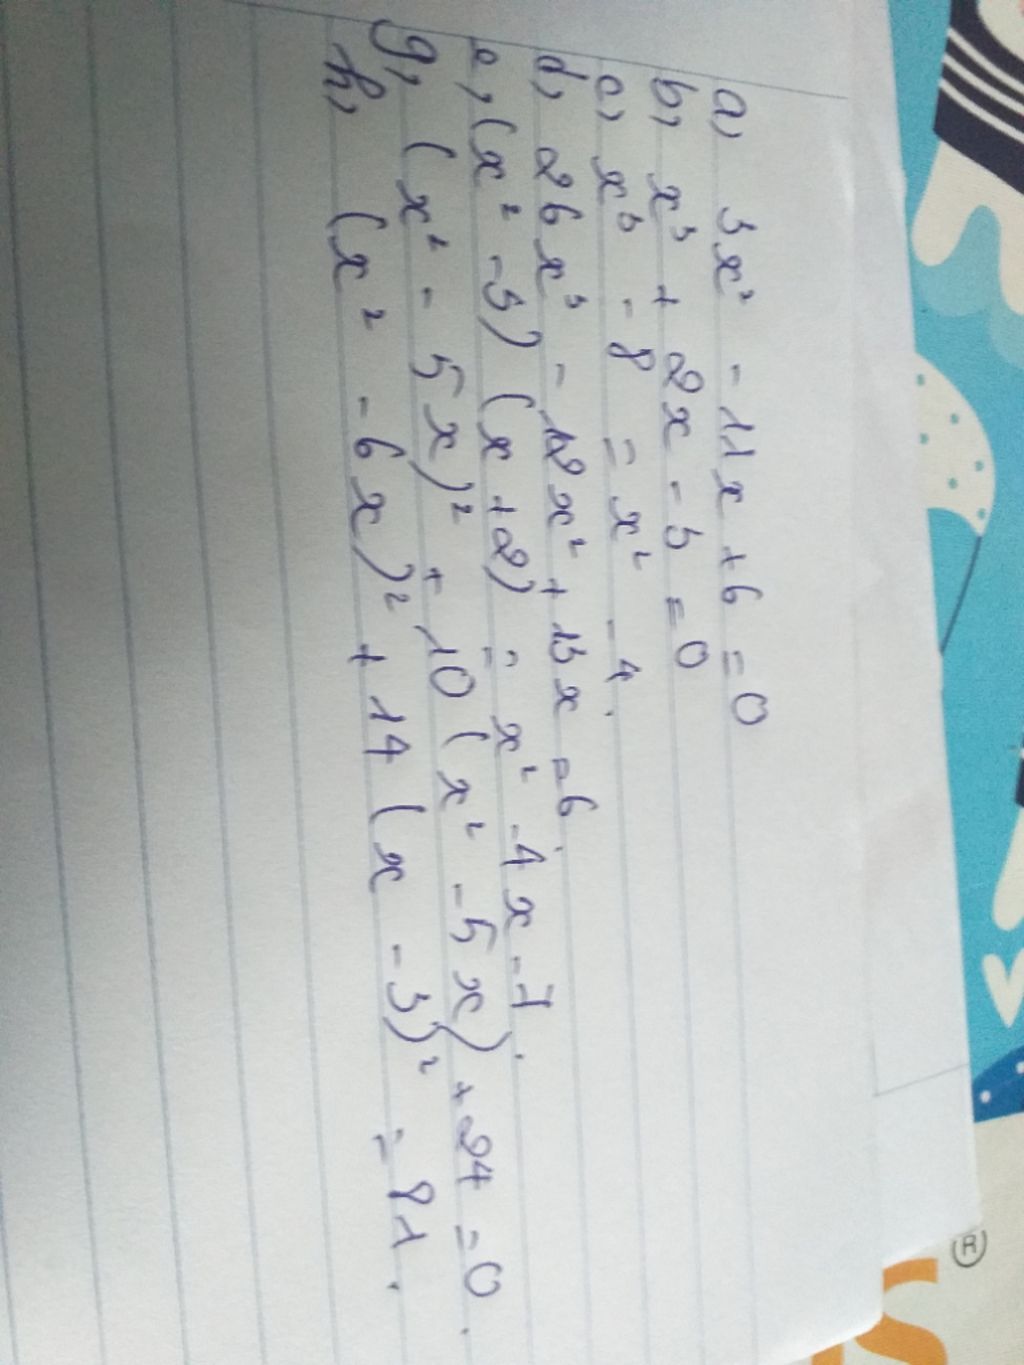 a, 3x² - 11x + 6 = 0
b, x³ + 2x - 3 = 0
c, x³ - 8 = x² - 4.
d, 26x³ - 12x² + 13x = 6.
e, (x² - 3) (x + 2) = x² - 4x - 7.
g, (x² - 5x)² + 10 (x² - 5x) + 24 = 0.
h, (x² - 6x)² + 14 (x - 3)² = 81.
®